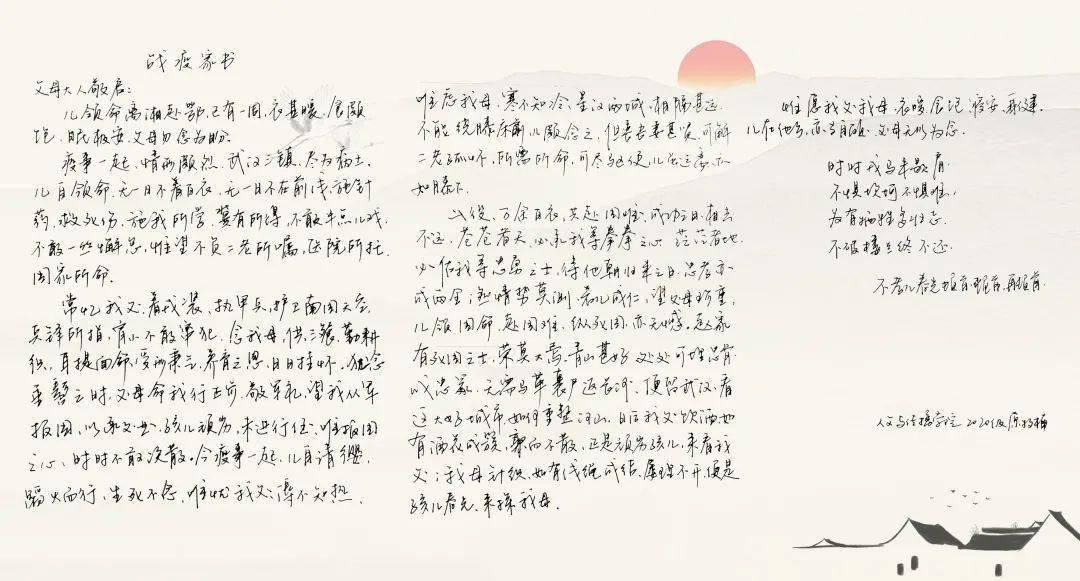 战疫家书
父母大人敬启：
儿领命离湘赴鄂，已有一周，衣甚暖，食颇
饱，眠极安，父母勿念为盼。
疫事一起，情形颇烈，武汉三镇，尽为病土。
儿自领命，无一日不着白衣，无一日不在前线，施针
药，救死伤，施我所学，冀有所得，不敢半点儿戏，
不敢一丝懈怠，惟望不负二老所嘱，医院所托，
国家所命。
常忆我父，着戎装，执甲兵，护卫南国大岳，
兵锋所指，宵小不敢来犯。念我母，供三餐，勤耕
织，耳提面命，受形秉之，养育之恩，日日挂怀。犹念
垂髫之时，父母命我行正步，敬军礼，望我从军
报国，以承父业，孩儿顽劣，未进行伍，惟报国
之心，时时不敢涣散。今疫事一起，儿自请缨，
蹈火而行，生死不念，惟忧我父，渖不知热，
惟虑我母，寒不知冷，星汉两城，相隔甚远，
不能绕膝床前，儿颇念之，但丧去妻甚贤，可解
二老孤怀，所需所命，可尽与这便，儿在远处亦
如膝下。
此役，万余白衣，共赴国难，成功之日，相去
不远，苍苍者天，必承我等拳拳之心，茫茫者地，
必佑我等忠勇之士，待他朝归来之日，忠孝亦
成两全；然情势莫测，若儿成仁，望父母珍重，
儿领国命，赴国难，纵死国，亦无憾。赵家
有死国之士，荣莫大焉，青山甚好，处处可埋忠骨，
成忠冢，无需马革裹尸返长沙，便留武汉，看
这大好城市，如何重整河山。日后我父饮酒，如
有酒花成簇，聚而不散，正是顽劣孩儿，来看我
父；我母针织，如有线绳成结，屡理不开，便是
孩儿春光，来探我母。
惟愿我父我母，衣暖，食饱，寝安，康健。
儿在他乡，亦当自顾，父母无以为念。
时时我马未敢肩
不惧坎坷不惧难，
为有牺牲多壮志
不破楼兰终不还。
不孝儿春光报首，报首，再报首。
人文与传播学院 2020级